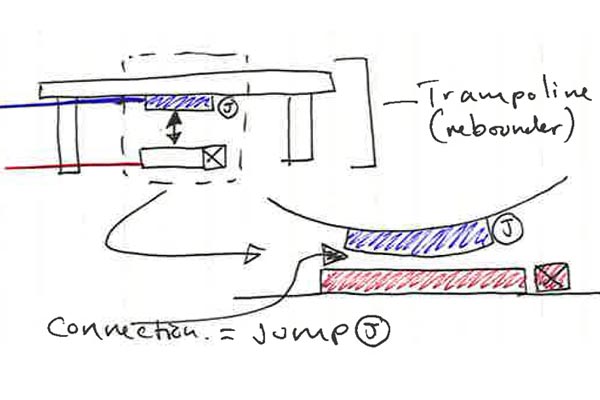 J
Trampoline
(rebounder)
J
Connection. = jump J